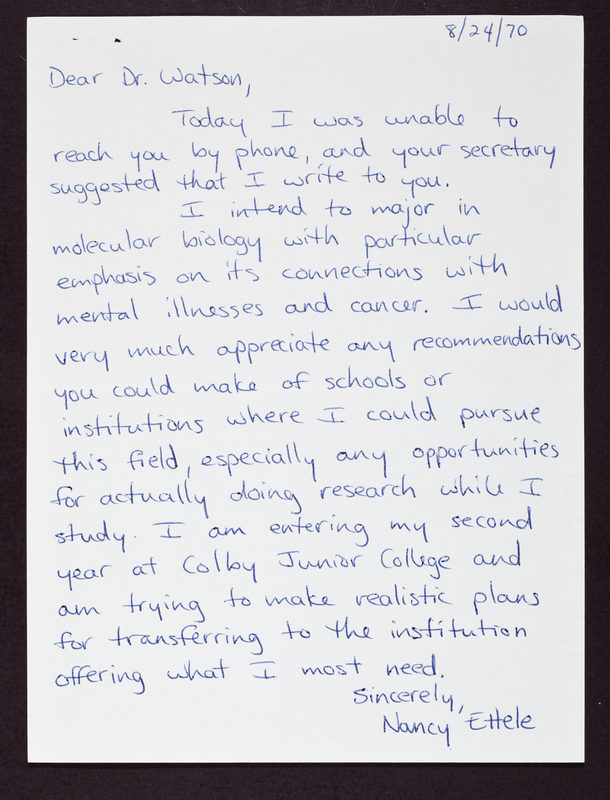 8/24/70
Dear Dr. Watson,
Today I was unable to
reach you by phone, and your secretary
suggested that I write to you.
I intend to major in
molecular biology with particular
emphasis on its connections with
mental illnesses and cancer. I would
very much appreciate any recommendations
you could make of schools or
institutions where I could pursue
this field, especially any opportunities
for actually doing research while I
study. I am entering my second
year at Colby Junior College and
am trying to make realistic plans
for transferring to the institution
offering what I most need.
Sincerely,
Nancy Ettele